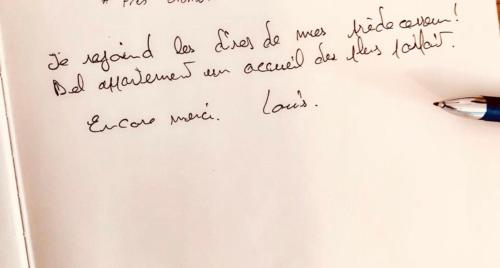 Je rejoind les dires de mes prédecesseur!
Bel appartement un accueil des plus parfait.
Encore merci. Louis.